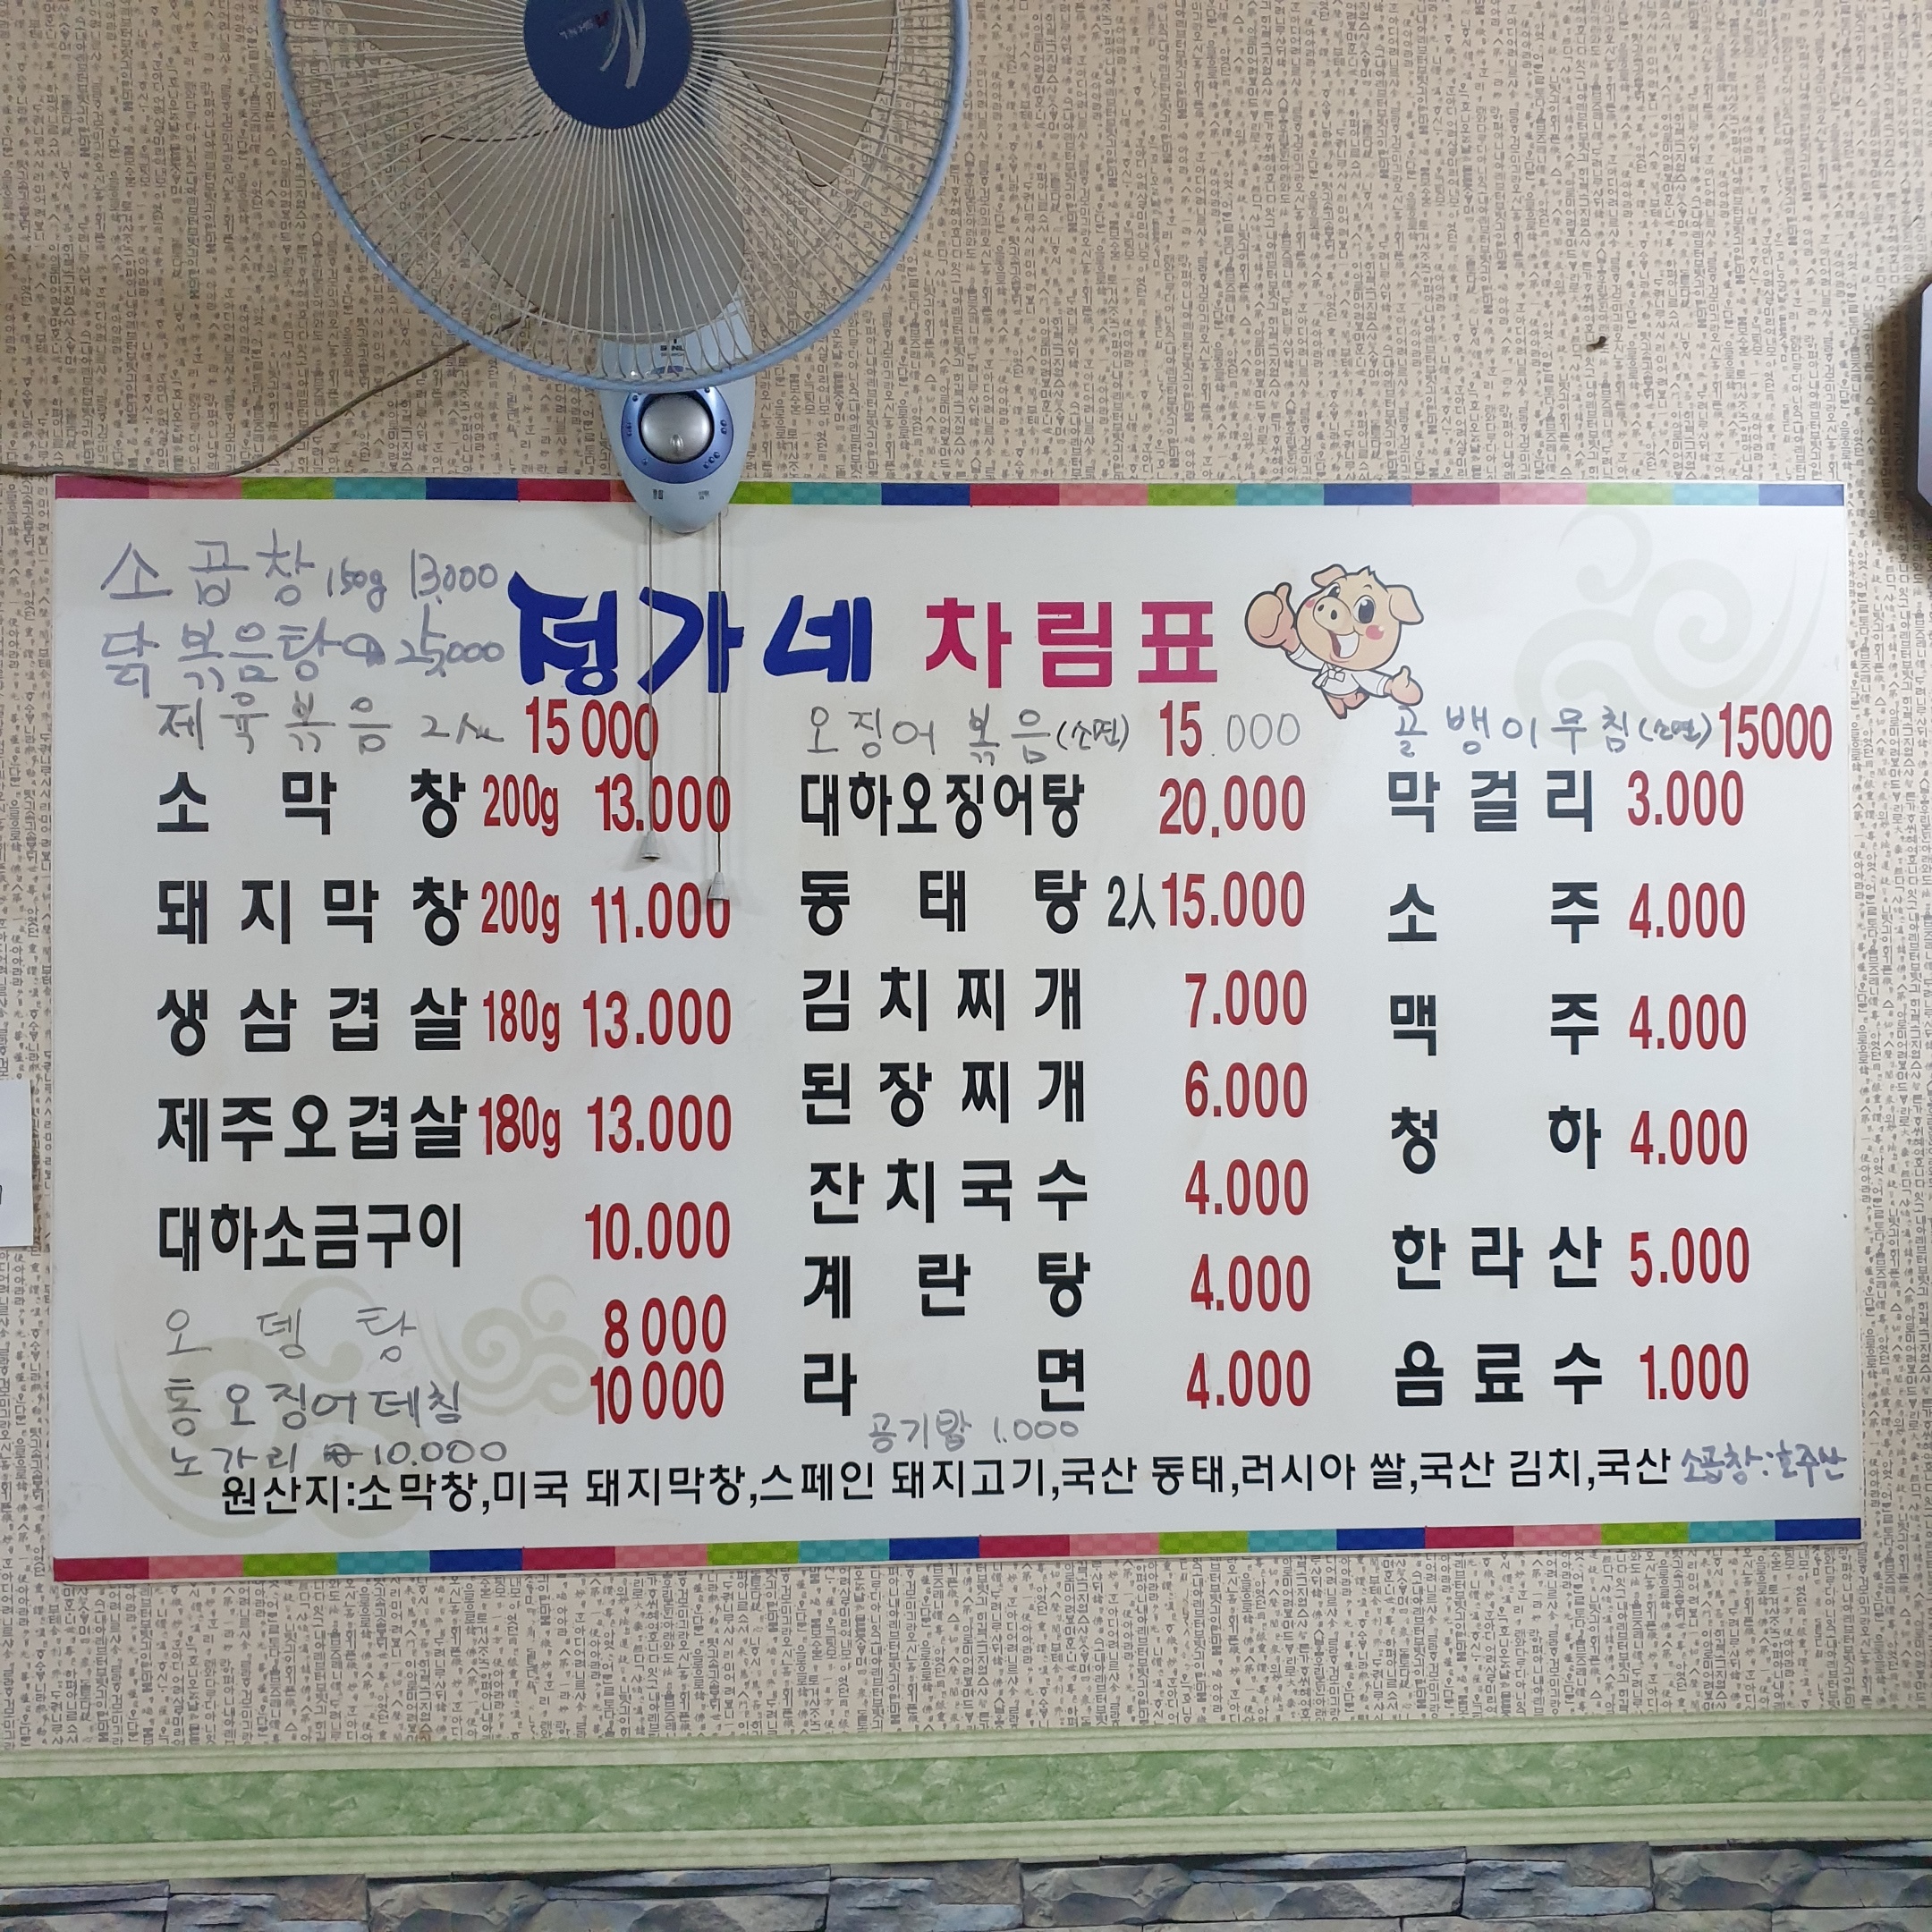 소곱창 150g 13,000
닭볶음탕 25,000
정가네 차림표
제육볶음 2人 15000
소막창 200g 13.000
돼지막창 200g 11.000
생삼겹살 180g 13.000
제주오겹살 180g 13.000
대하소금구이 10.000
오뎅탕 8000
통오징어데침 10000
노가리 10.000
오징어볶음(소면) 15.000
대하오징어탕 20.000
동태탕 2人 15.000
김치찌개 7.000
된장찌개 6.000
잔치국수 4.000
계란탕 4.000
라면 4.000
공기밥 1.000
골뱅이무침(소면) 15000
막걸리 3.000
소주 4.000
맥주 4.000
청하 4.000
한라산 5.000
음료수 1.000
원산지:소막창,미국 돼지막창,스페인 돼지고기,국산 동태,러시아 쌀,국산 김치,국산 소곱창:호주산